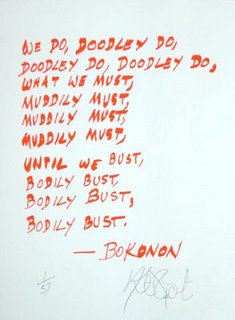 WE DO, DOODLEY DO,
DOODLEY DO, DOODLEY DO,
WHAT WE MUST,
MUDDILY MUST,
MUDDILY MUST,
MUDDILY MUST,
UNTIL WE BUST,
BODILY BUST,
BODILY BUST,
BODILY BUST.
— BOKONON
1/57